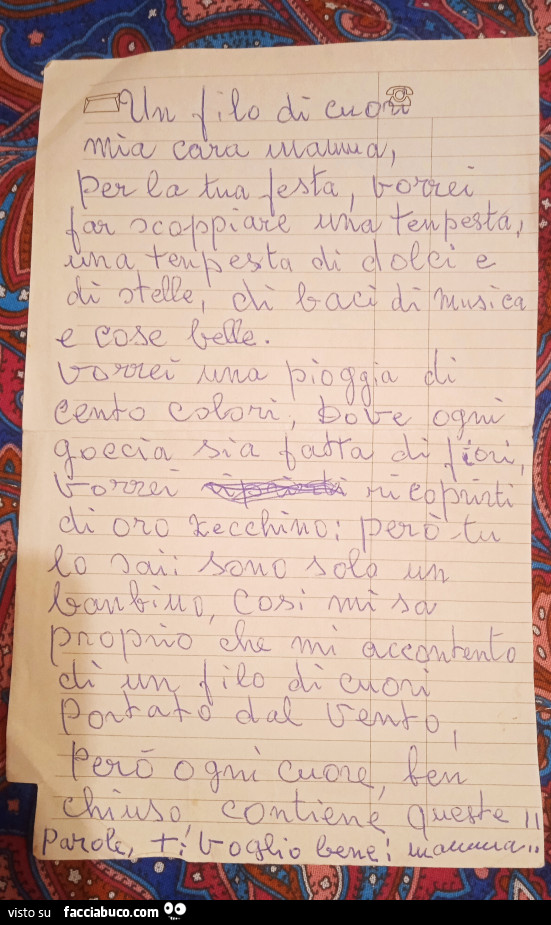 Un filo di cuori
mia cara mamma,
per la tua festa, vorrei
far scoppiare una tenpesta,
una tenpesta di dolci e
di stelle, di baci di musica
e cose belle.
vorrei una pioggia di
cento colori, Dove ogni
goccia sia fatta di fiori,
Vorrei ricoprirti
di oro zecchino: però tu
lo sai: sono solo un
banbino, cosi mi sa
proprio che mi accontento
di un filo di cuori
portato dal vento,
però ogni cuore, ben
chiuso contiene queste
parole, ti voglio bene: mamma..
visto su facciabuco.com